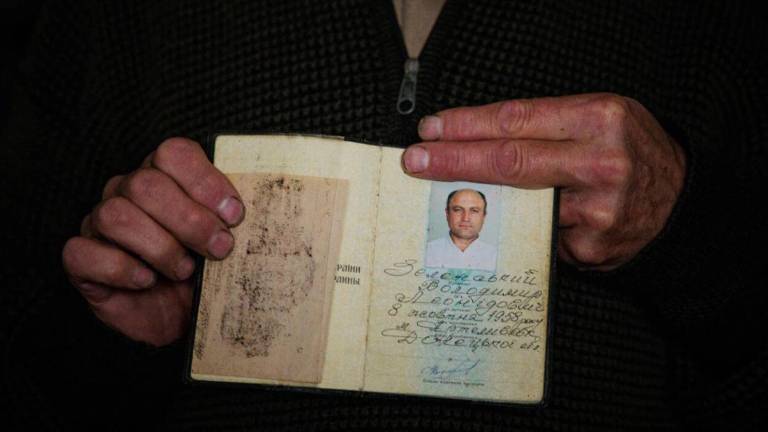 раїни
аины
Зеленський
Володимир
Леонідович
8 жовтня 1958 року
м. Артемівськ
Донецької обл